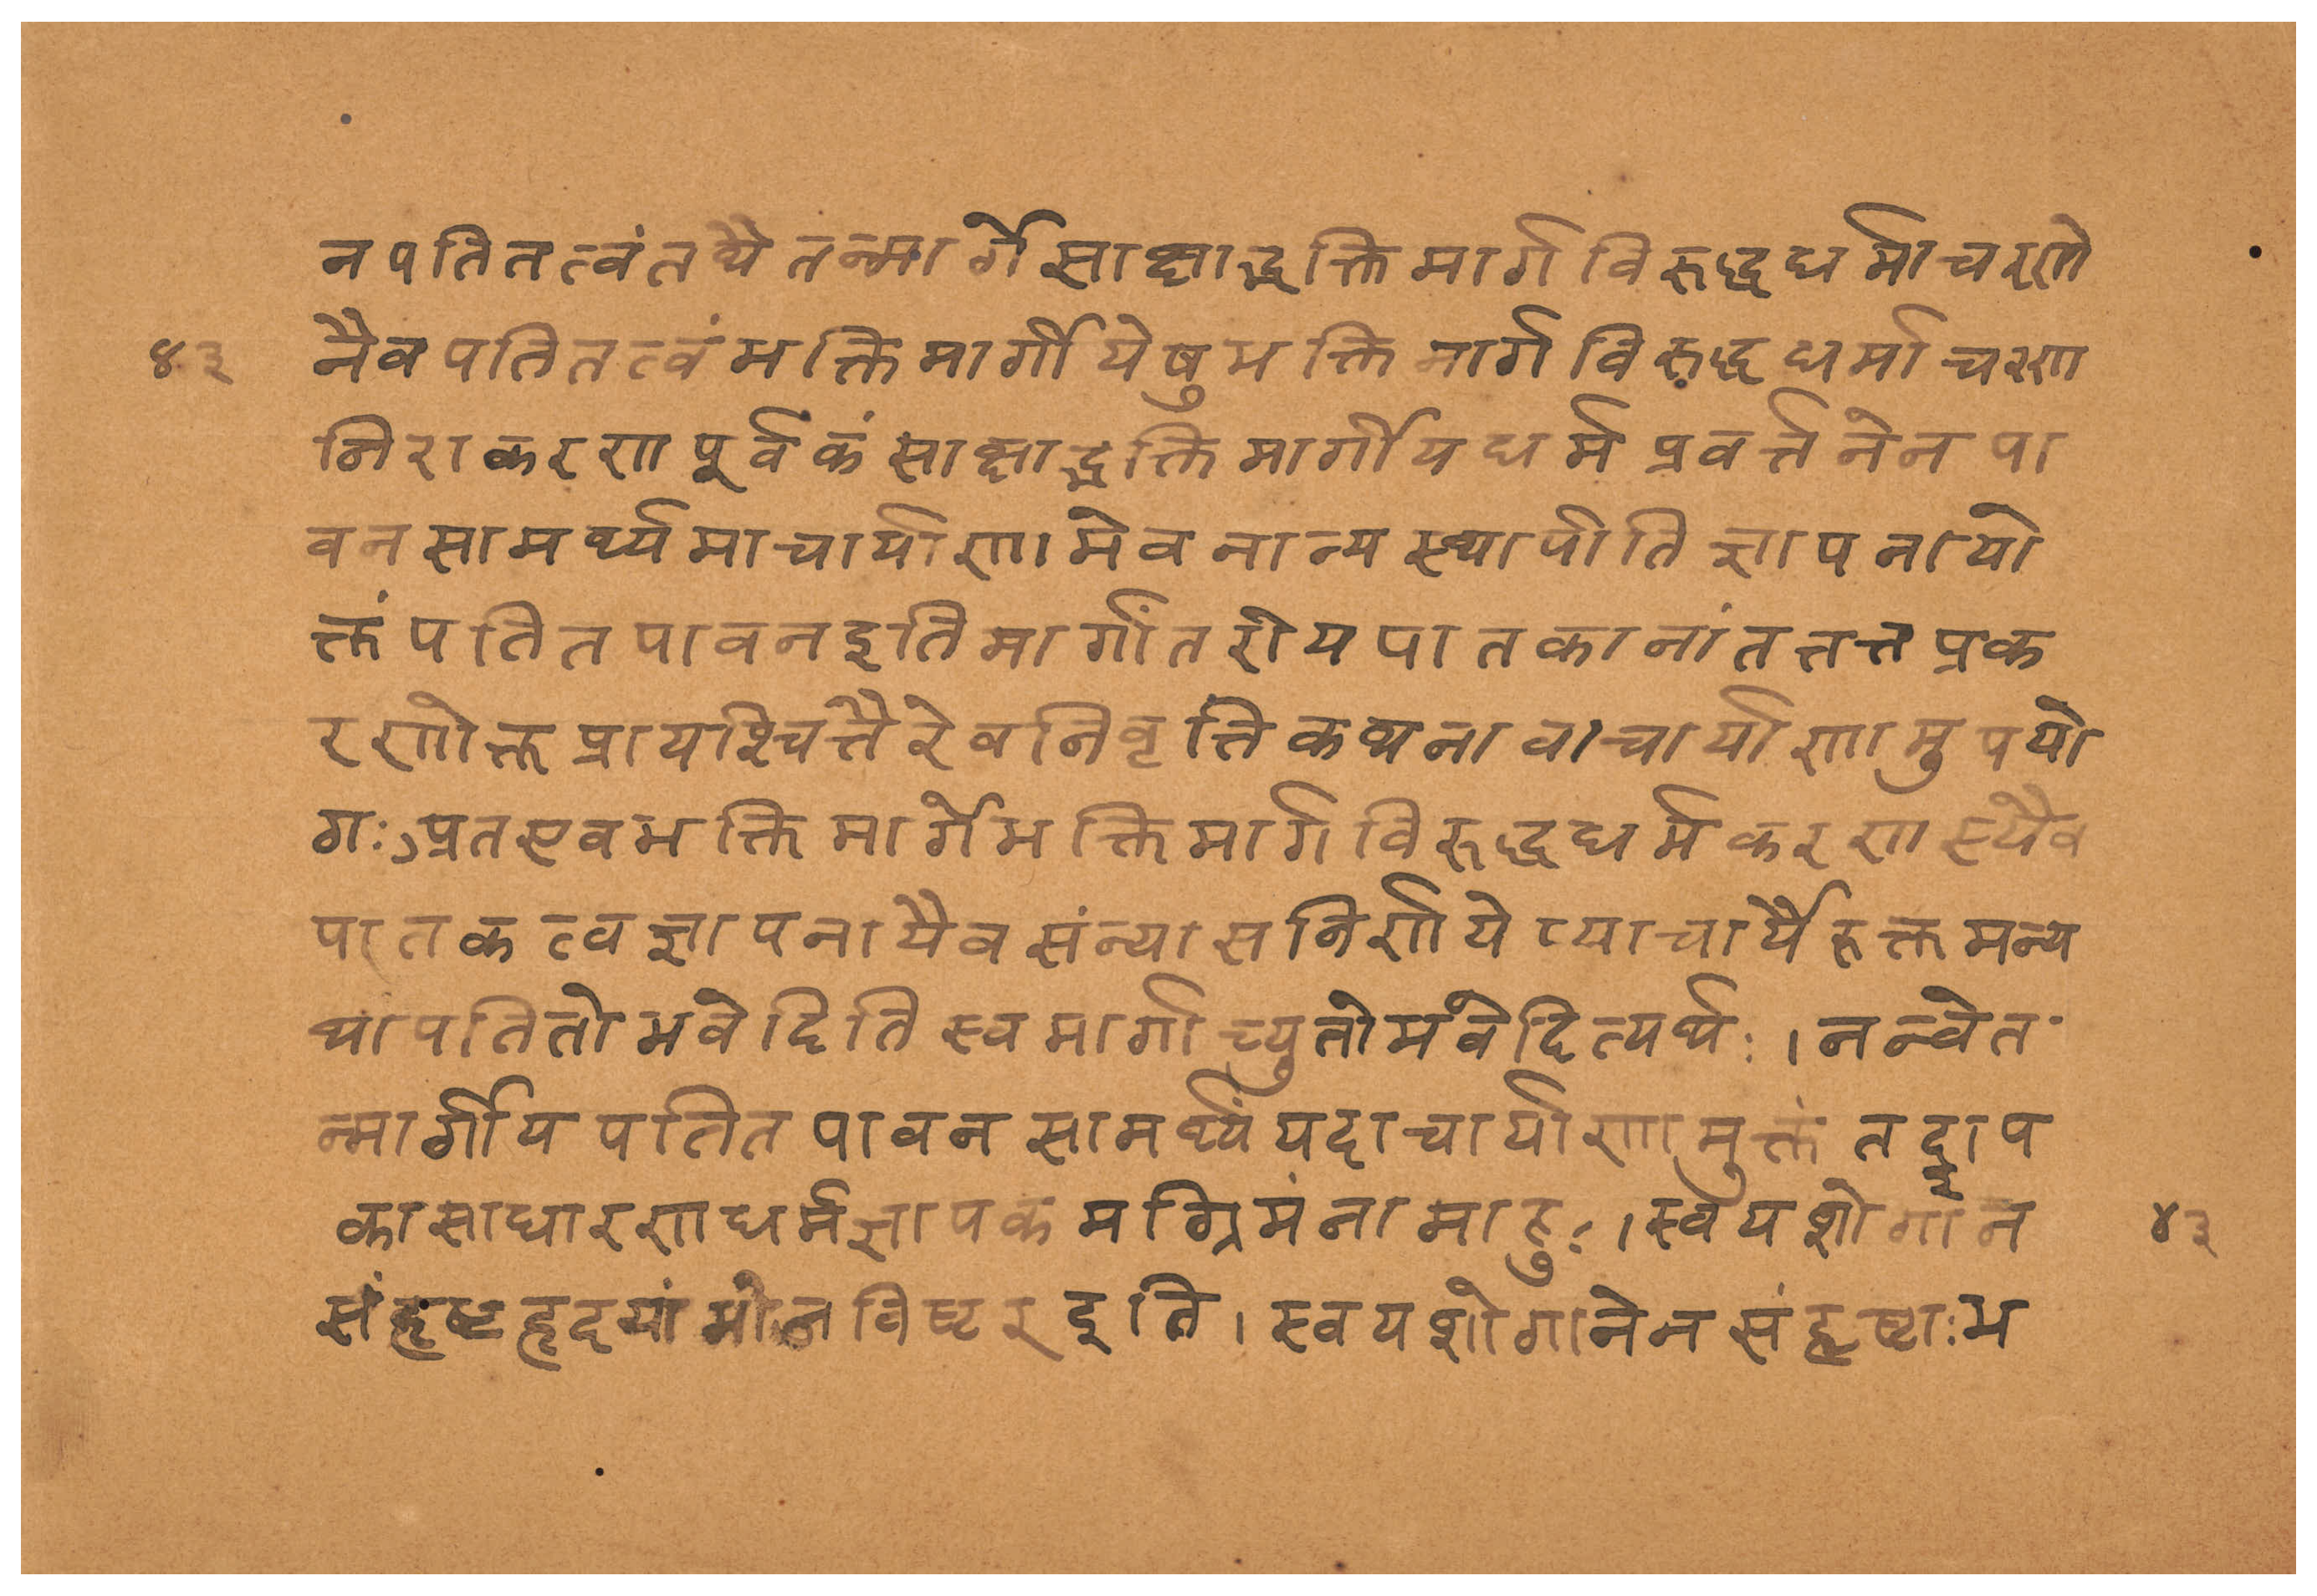 नपतितत्वंतथैतन्मार्गेसाक्षाद्भक्तिमार्गविरुद्धधर्माचरणे
४३ नैवपतितत्वंभक्तिमार्गीयेषुभक्तिमार्गविरुद्धधर्माचरण
निराकरणपूर्वकंसाक्षाद्भक्तिमार्गीयधर्मप्रवर्त्तनेनपा
वनसामर्थ्यमाचार्याणामेवनान्यस्यापीतिज्ञापनायो
क्तंपतितपावनइतिमार्गांतरीयपातकानांतत्तत्प्रक
रणोक्तप्रायश्चित्तैरेवनिवृत्तिकथनान्नाचार्याणामुपयो
गः।अतएवभक्तिमार्गेभक्तिमार्गविरुद्धधर्मकरणस्यैव
पातकत्वज्ञापनायैवसंन्यासनिर्णयेप्याचार्यैरुक्तमन्य
थापतितोभवेदितिस्वमार्गाच्च्युतोभवेदित्यर्थः।नन्वेत
न्मार्गीयपतितपावनसामर्थ्यंयदाचार्याणामुक्तंतद्व्याप
कासाधारणधर्मज्ञापकमग्रिमंनामाहुः।स्वयशोगान ४३
संहृष्टहृदयांभोजविष्टरइति।स्वयशोगानेनसंहृष्टाःभ